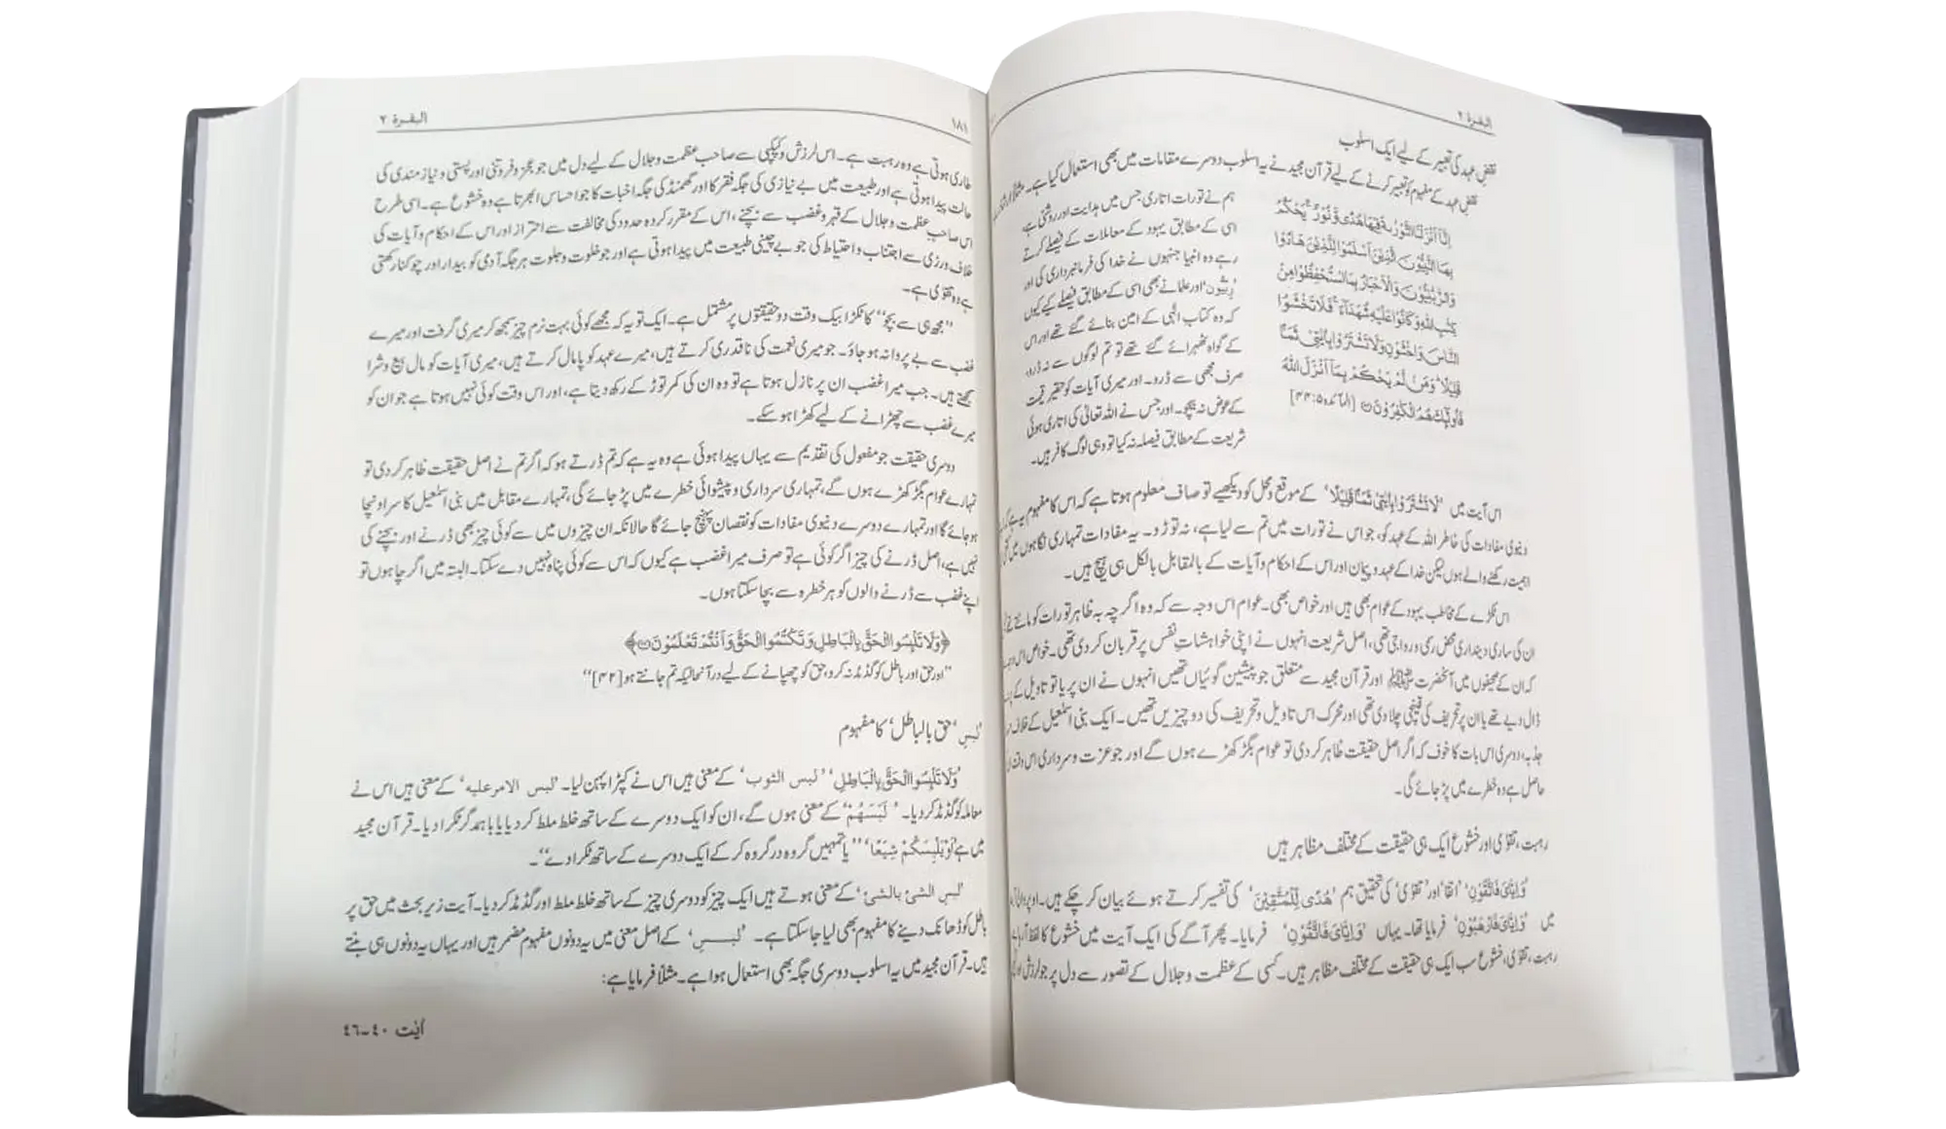 البقرۃ ۲
نقضِ عہد کی تعبیر کے لیے ایک اسلوب
نقضِ عہد کے مفہوم کو تعبیر کرنے کے لیے قرآن مجید نے یہ اسلوب دوسرے مقامات میں بھی استعمال کیا ہے۔ مثلاً
اِنَّآ اَنْزَلْنَا التَّوْرٰىةَ فِيْهَا هُدًى وَّنُوْرٌ ۚ يَحْكُمُ
بِهَا النَّبِيُّوْنَ الَّذِيْنَ اَسْلَمُوْا لِلَّذِيْنَ هَادُوْا
وَالرَّبّٰنِيُّوْنَ وَالْاَحْبَارُ بِمَا اسْتُحْفِظُوْا مِنْ
كِتٰبِ اللّٰهِ وَكَانُوْا عَلَيْهِ شُهَدَآءَ ۚ فَلَا تَخْشَوُا
النَّاسَ وَاخْشَوْنِ وَلَا تَشْتَرُوْا بِاٰيٰتِيْ ثَمَنًا
قَلِيْلًا ۭ وَمَنْ لَّمْ يَحْكُمْ بِمَآ اَنْزَلَ اللّٰهُ
فَاُولٰٓئِكَ هُمُ الْكٰفِرُوْنَ ۝ [المآئدہ ۵:۴۴]
ہم نے تورات اتاری جس میں ہدایت اور روشنی ہے،
اسی کے مطابق یہود کے معاملات کے فیصلے کرتے
رہے وہ انبیا جنہوں نے خدا کی فرمانبرداری کی اور
’ربیّون‘ اور علما نے بھی اسی کے مطابق فیصلے کیے کیوں
کہ وہ کتاب الٰہی کے امین بنائے گئے تھے اور اس
کے گواہ ٹھہرائے گئے تھے تو تم لوگوں سے نہ ڈرو،
صرف مجھی سے ڈرو۔ اور میری آیات کو حقیر قیمت
کے عوض نہ بیچو۔ اور جس نے اللہ تعالیٰ کی اتاری ہوئی
شریعت کے مطابق فیصلہ نہ کیا تو وہی لوگ کافر ہیں۔
اس آیت میں ’لَا تَشْتَرُوْا بِاٰيٰتِيْ ثَمَنًا قَلِيْلًا‘ کے موقع و محل کو دیکھیے تو صاف معلوم ہوتا ہے کہ اس کا مفہوم یہ ہے کہ
دنیوی مفادات کی خاطر اللہ کے عہد کو، جو اس نے تورات میں تم سے لیا ہے، نہ توڑو۔ یہ مفادات تمہاری نگاہوں میں
اہمیت رکھنے والے ہوں لیکن خدا کے عہد و پیمان اور اس کے احکام و آیات کے بالمقابل بالکل ہی ہیچ ہیں۔
اس ٹکڑے کے مخاطب یہود کے عوام بھی ہیں اور خواص بھی۔ عوام اس وجہ سے کہ وہ اگرچہ بہ ظاہر تورات کو مانتے
ان کی ساری دینداری محض رسمی و رواجی تھی، اصل شریعت انہوں نے اپنی خواہشاتِ نفس پر قربان کر دی تھی۔ خواص اس
کہ ان کے صحیفوں میں آنحضرت ﷺ اور قرآن مجید سے متعلق جو پیشین گوئیاں تھیں انہوں نے ان پر یا تو تاویل کے
ڈال دیے تھے یا ان پر تحریف کی قینچی چلا دی تھی اور محرک اس تاویل و تحریف کی دو چیزیں تھیں۔ ایک بنی اسمٰعیل کے خلاف
جذبہ، دوسری اس بات کا خوف کہ اگر اصل حقیقت ظاہر کر دی تو عوام بگڑ کھڑے ہوں گے اور جو عزت و سرداری اس وقت
حاصل ہے وہ خطرے میں پڑ جائے گی۔
رہبت، تقوٰی اور خشوع ایک ہی حقیقت کے مختلف مظاہر ہیں
’وَاِيَّايَ فَاتَّقُوْنِ‘ ’اتقا‘ اور ’تقوٰی‘ کی تحقیق ہم ’هُدًى لِّلْمُتَّقِيْنَ‘ کی تفسیر کرتے ہوئے بیان کر چکے ہیں۔ اوپر والی
میں ’وَاِيَّايَ فَارْهَبُوْنِ‘ فرمایا تھا۔ یہاں ’وَاِيَّايَ فَاتَّقُوْنِ‘ فرمایا۔ پھر آگے کی ایک آیت میں خشوع کا لفظ
رہبت، تقوٰی، خشوع سب ایک ہی حقیقت کے مختلف مظاہر ہیں۔ کسی کے عظمت و جلال کے تصور سے دل پر جو لرزش
۱۸۱
البقرۃ ۲
طاری ہوتی ہے وہ رہبت ہے۔ اس لرزش و کپکپی سے صاحبِ عظمت و جلال کے لیے دل میں جو عجز و فروتنی اور پستی و نیاز مندی کی
حالت پیدا ہوتی ہے اور طبیعت میں بے نیازی کی جگہ فقر کا اور گھمنڈ کی جگہ اخبات کا جو احساس ابھرتا ہے وہ خشوع ہے۔ اسی طرح
اس صاحبِ عظمت و جلال کے قہر و غضب سے بچنے، اس کے مقرر کردہ حدود کی مخالفت سے احتراز اور اس کے احکام و آیات کی
خلاف ورزی سے اجتناب و احتیاط کی جو بے چینی طبیعت میں پیدا ہوتی ہے اور جو خلوت و جلوت ہر جگہ آدمی کو بیدار اور چوکنا رکھتی
ہے وہ تقوٰی ہے۔
”مجھ ہی سے بچو“ کا ٹکڑا بیک وقت دو حقیقتوں پر مشتمل ہے۔ ایک تو یہ کہ مجھے کوئی بہت نرم چیز سمجھ کر میری گرفت اور میرے
غضب سے بے پروا نہ ہو جاؤ۔ جو میری نعمت کی ناقدری کرتے ہیں، میرے عہد کو پامال کرتے ہیں، میری آیات کو مال بیع و شرا
سمجھتے ہیں۔ جب میرا غضب ان پر نازل ہوتا ہے تو وہ ان کی کمر توڑ کے رکھ دیتا ہے، اور اس وقت کوئی نہیں ہوتا ہے جو ان کو
میرے غضب سے چھڑانے کے لیے کھڑا ہو سکے۔
دوسری حقیقت جو مفعول کی تقدیم سے یہاں پیدا ہوئی ہے وہ یہ ہے کہ تم ڈرتے ہو کہ اگر تم نے اصل حقیقت ظاہر کر دی تو
تمہارے عوام بگڑ کھڑے ہوں گے، تمہاری سرداری و پیشوائی خطرے میں پڑ جائے گی، تمہارے مقابل میں بنی اسمٰعیل کا سر اونچا
ہو جائے گا اور تمہارے دوسرے دنیوی مفادات کو نقصان پہنچ جائے گا حالانکہ ان چیزوں میں سے کوئی چیز بھی ڈرنے اور بچنے کی
نہیں ہے، اصل ڈرنے کی چیز اگر کوئی ہے تو صرف میرا غضب ہے کیوں کہ اس سے کوئی پناہ نہیں دے سکتا۔ البتہ میں اگر چاہوں تو
اپنے غضب سے ڈرنے والوں کو ہر خطرہ سے بچا سکتا ہوں۔
﴿وَلَا تَلْبِسُوا الْحَقَّ بِالْبَاطِلِ وَتَكْتُمُوا الْحَقَّ وَاَنْتُمْ تَعْلَمُوْنَ ۝﴾
”اور حق اور باطل کو گڈمڈ نہ کرو، حق کو چھپانے کے لیے درآنحالیکہ تم جانتے ہو [۴۲]“
’لبسِ‘ ’حق بالباطل‘ کا مفہوم
’وَلَا تَلْبِسُوا الْحَقَّ بِالْبَاطِلِ‘ ’لبس الثوب‘ کے معنی ہیں اس نے کپڑا پہن لیا۔ ’لبس الامر علیہ‘ کے معنی ہیں اس نے
معاملہ کو گڈمڈ کر دیا۔ ’لَبَسَهُمْ‘ کے معنی ہوں گے، ان کو ایک دوسرے کے ساتھ خلط ملط کر دیا یا باہمدگر ٹکرا دیا۔ قرآن مجید
میں ہے ’اَوْ يَلْبِسَكُمْ شِيَعًا‘ ”یا تمہیں گروہ در گروہ کر کے ایک دوسرے کے ساتھ ٹکرا دے“۔
’لبس الشئ بالشئ‘ کے معنی ہوتے ہیں ایک چیز کو دوسری چیز کے ساتھ خلط ملط اور گڈمڈ کر دیا۔ آیت زیر بحث میں حق پر
باطل کو ڈھانک دینے کا مفہوم بھی لیا جا سکتا ہے۔ ’لبس‘ کے اصل معنی میں یہ دونوں مفہوم مضمر ہیں اور یہاں یہ دونوں ہی بنتے
ہیں۔ قرآن مجید میں یہ اسلوب دوسری جگہ بھی استعمال ہوا ہے۔ مثلاً فرمایا ہے:
اٰیٰت ۴۰-۴۶